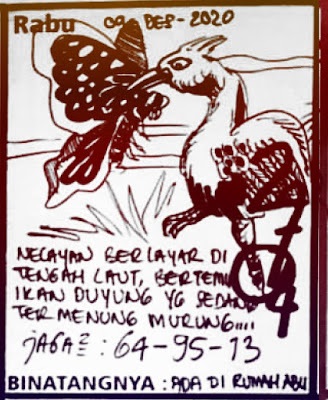 Rabu 09-DES-2020
NELAYAN BERLAYAR DI
TENGAH LAUT, BERTEMU
IKAN DUYUNG YG SEDANG
TERMENUNG MURUNG....
JAGA² : 64-95-13
BINATANGNYA : ADA DI RUMAH ABU